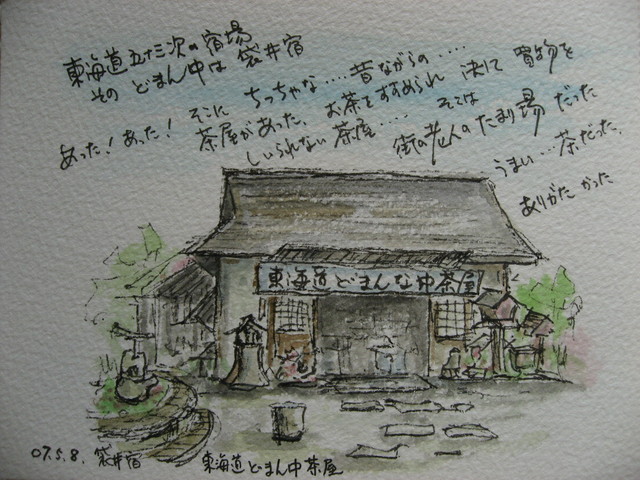 東海道五十三次の宿場
その どまん中は 袋井宿
あった！あった！ そこに ちっちゃな....昔ながらの....
茶屋があった、 お茶をすすめられ 決して 買物を
しいられない 茶屋.... そこは 街の老人のたまり場 だった
うまい...茶だった、
ありがた かった
東海道どまんな中茶屋
07.5.8. 袋井宿 東海道どまん中茶屋